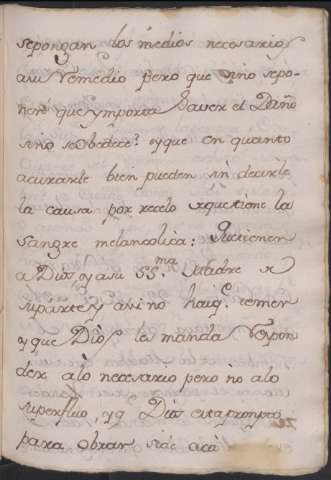 sepongan los medios necesarios
asu Remedio pero que sino sepo-
nen que ymporta saver el Daño
sino se Obedece? oyque en quanto
acurarle bien pueden sin decirle
la causa por recelo xqe tiene la
sangre melancolica: Qe tienen
a Dios y asu SS.ma Madre x
suparte y asi no hai qe temer
oyque Dios les manda Respon
der alo necesario pero no alo
superfluo, yq Dios esta prompto
para obrar